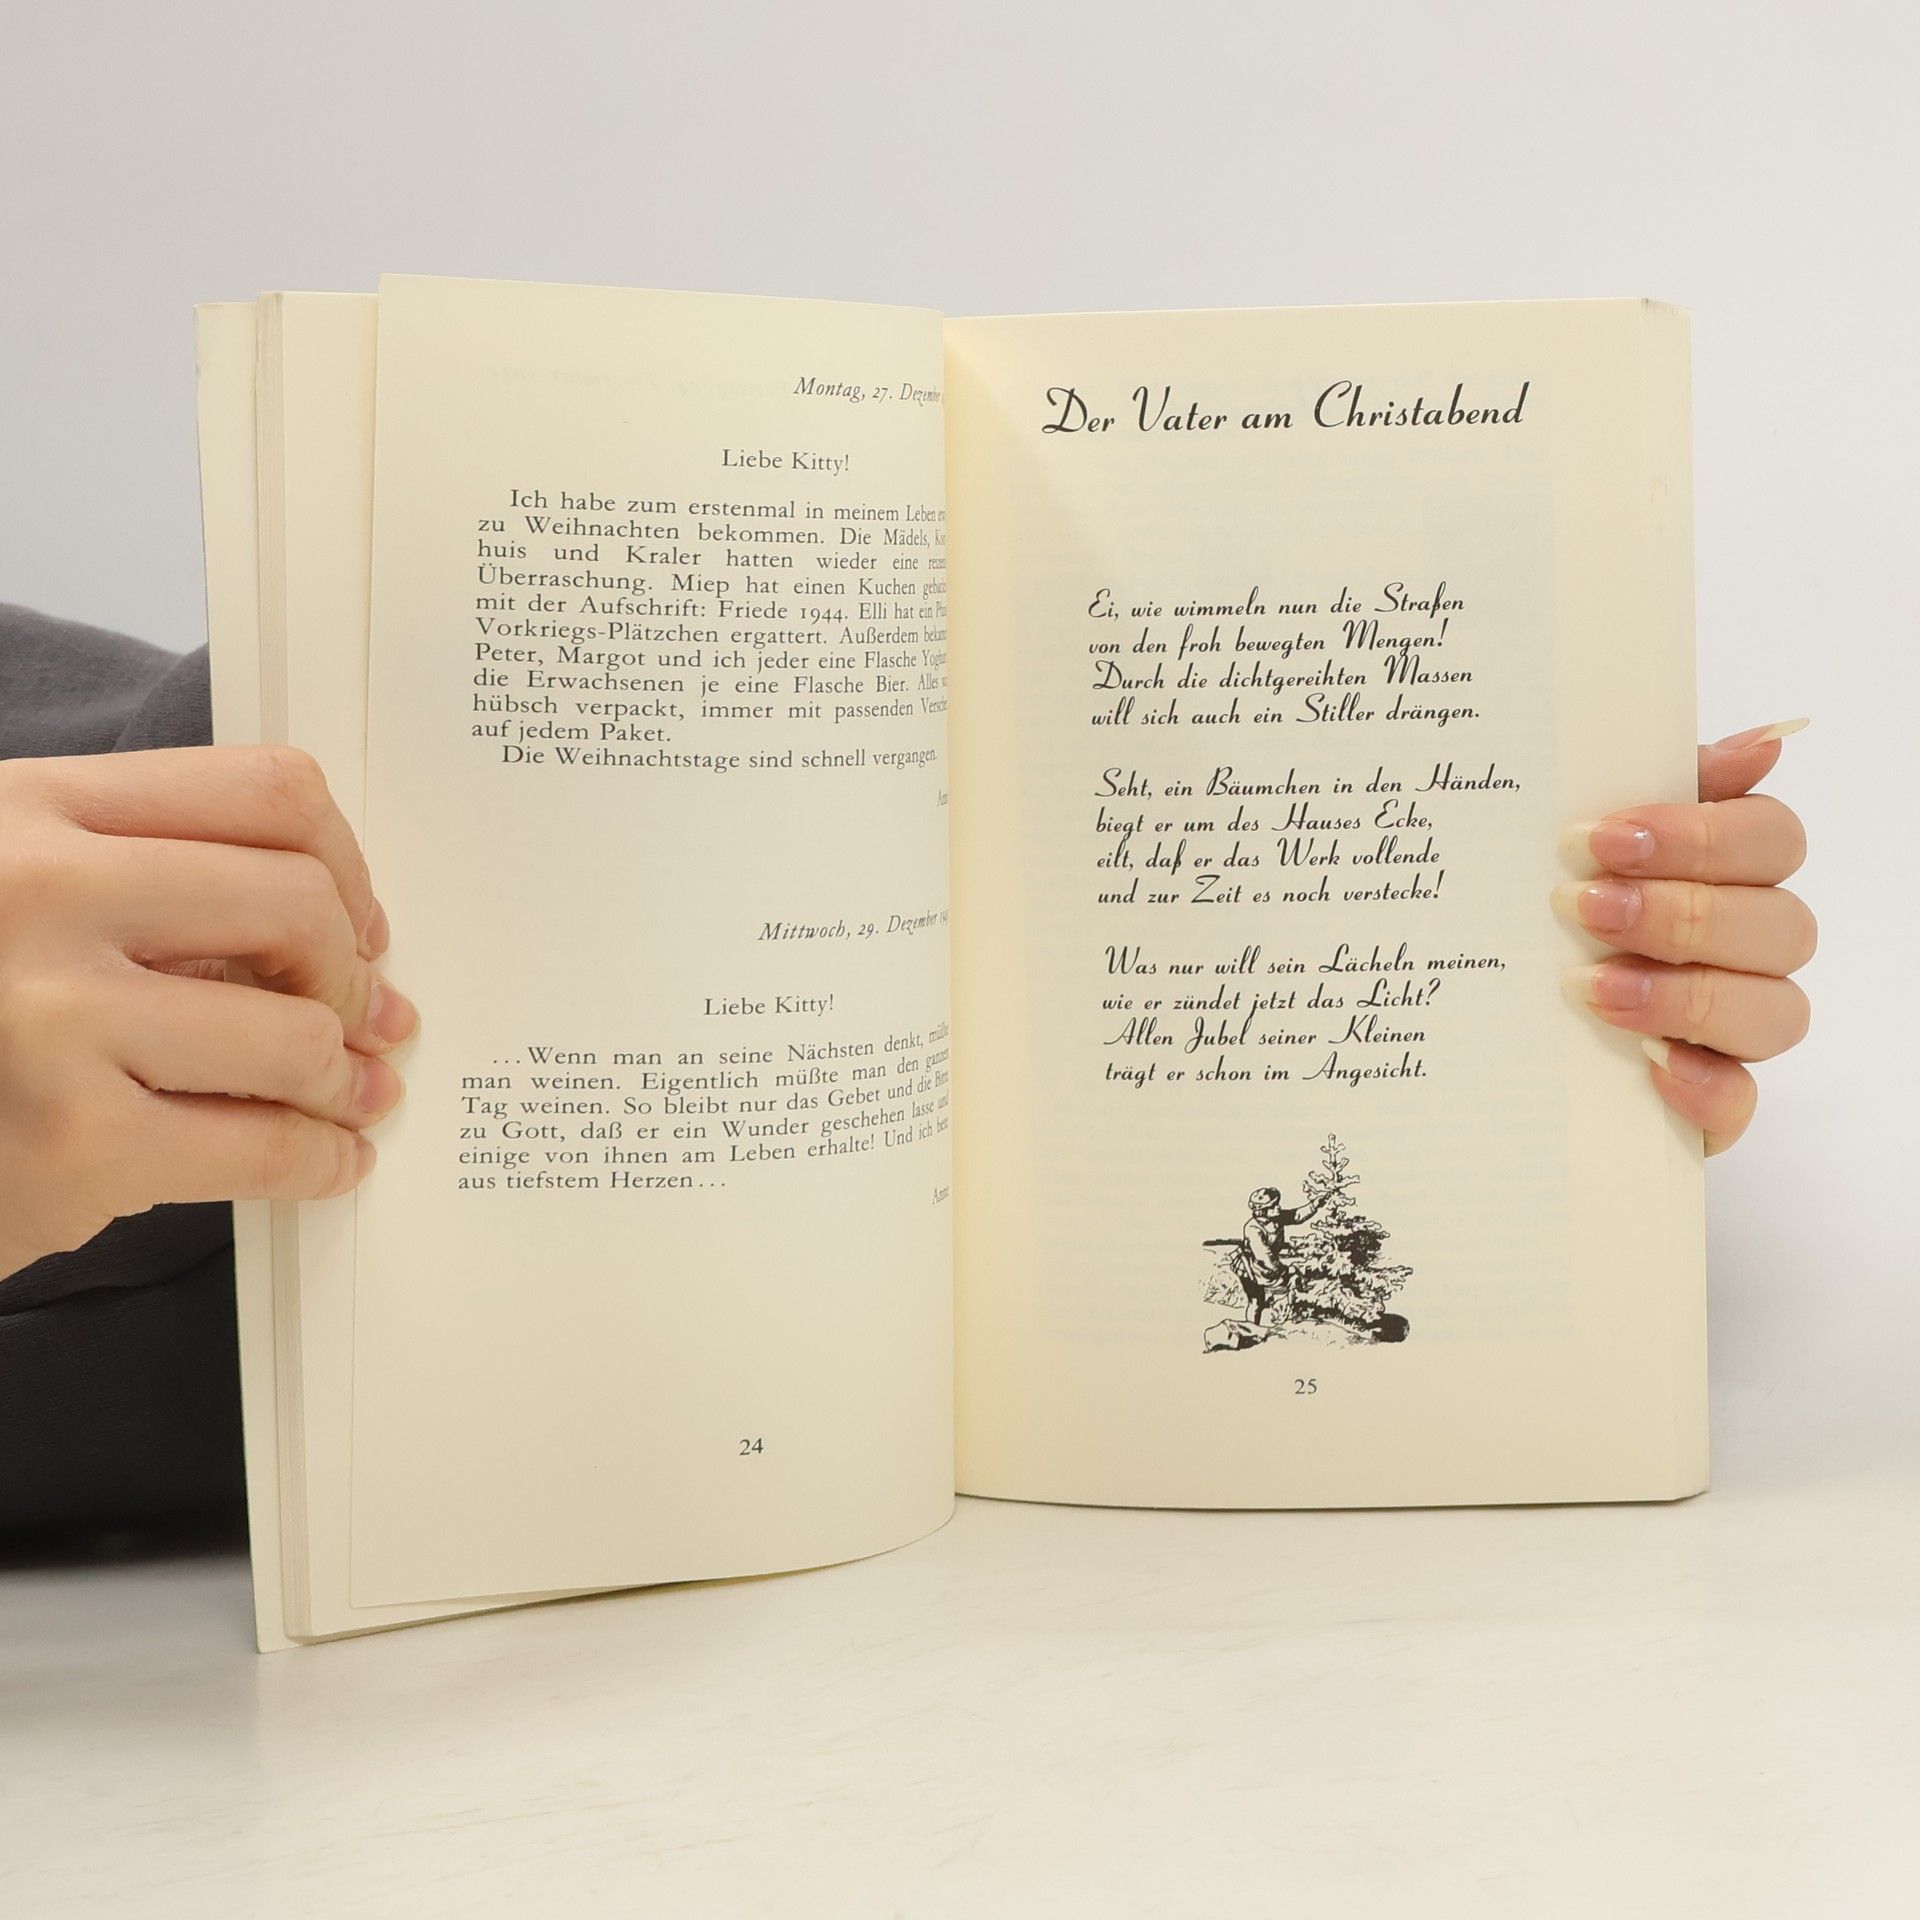 Montag, 27. Dezember
Liebe Kitty!
Ich habe zum erstenmal in meinem Leben
zu Weihnachten bekommen. Die Mädels,
huis und Kraler hatten wieder eine
Überraschung. Miep hat einen Kuchen
mit der Aufschrift: Friede 1944. Elli hat ein
Vorkriegs-Plätzchen ergattert. Außerdem
Peter, Margot und ich jeder eine Flasche
die Erwachsenen je eine Flasche Bier. Alles
hübsch verpackt, immer mit passenden
auf jedem Paket.
Die Weihnachtstage sind schnell vergangen.
Mittwoch, 29. Dezember
Liebe Kitty!
...Wenn man an seine Nächsten denkt, müßte
man weinen. Eigentlich müßte man den ganzen
Tag weinen. So bleibt nur das Gebet und die Bitte
zu Gott, daß er ein Wunder geschehen lasse und
einige von ihnen am Leben erhalte! Und ich bete
aus tiefstem Herzen...
Anne
24
Der Vater am Christabend
Ei, wie wimmeln nun die Straßen
von den froh bewegten Mengen!
Durch die dichtgereihten Massen
will sich auch ein Stiller drängen.
Seht, ein Bäumchen in den Händen,
biegt er um des Hauses Ecke,
eilt, daß er das Werk vollende
und zur Zeit es noch verstecke!
Was nur will sein Lächeln meinen,
wie er zündet jetzt das Licht?
Allen Jubel seiner Kleinen
trägt er schon im Angesicht.
25